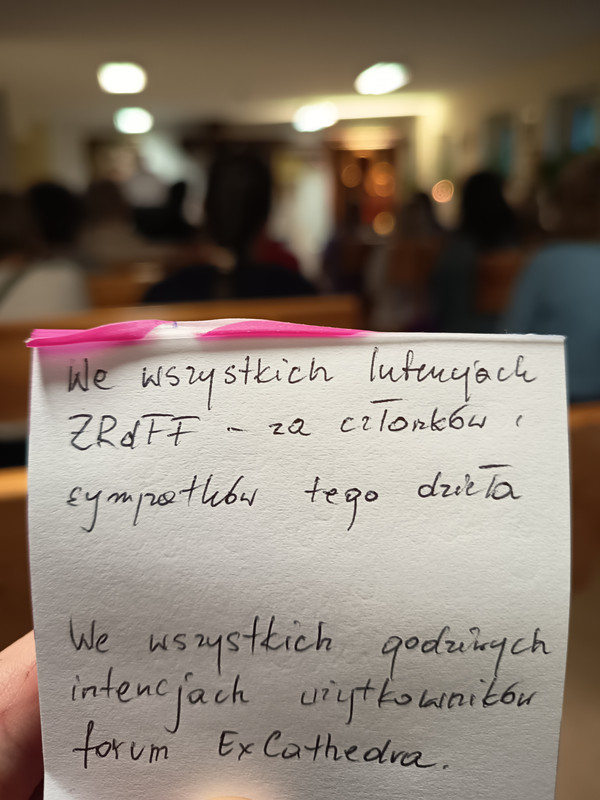 We wszystkich Intencjach
ZRdFF - za członków i
sympatków tego dzieła
We wszystkich godziwych
intencjach użytkowników
forum ExCathedra.